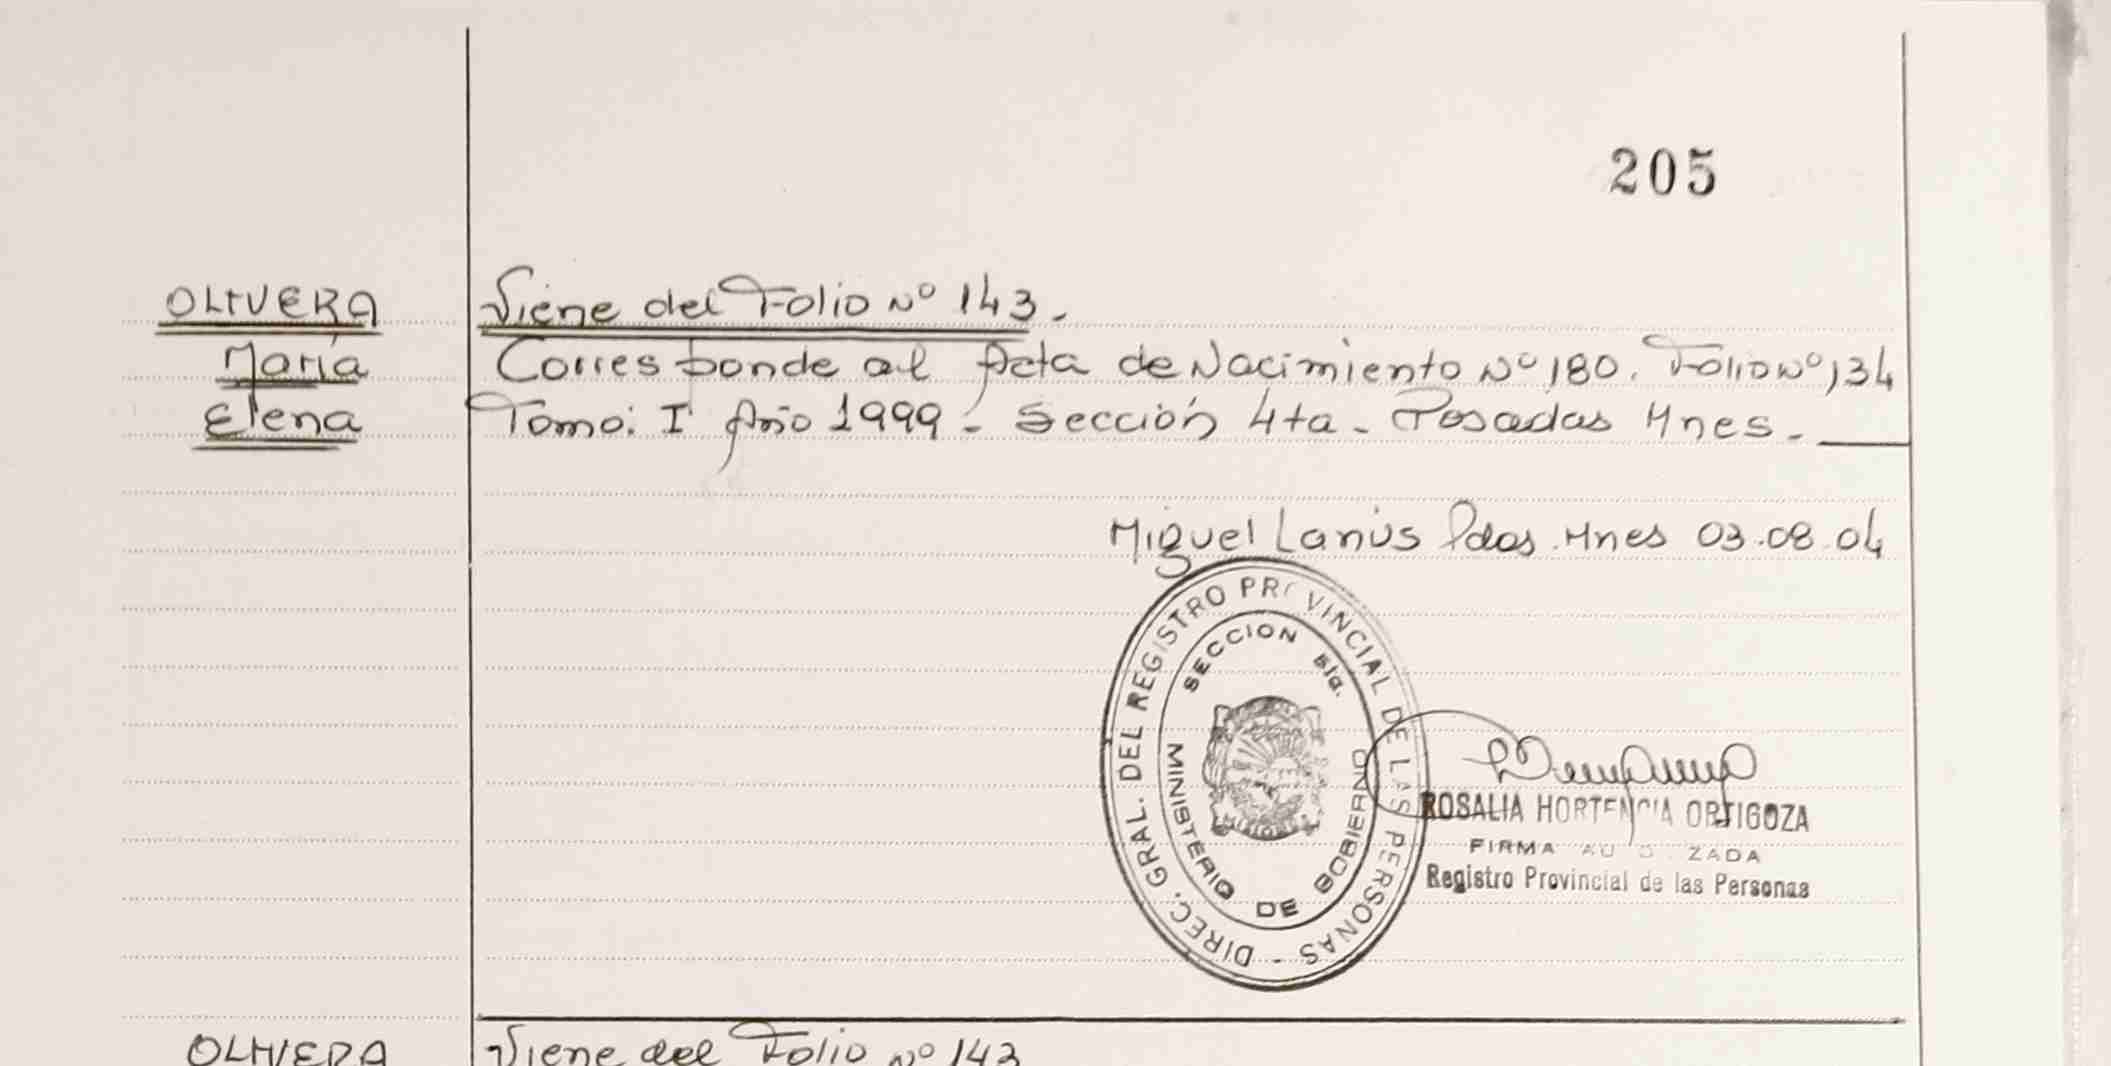 205
OLIVERA Viene del Folio Nº 143.
María Corresponde al Acta de Nacimiento Nº 180. Folio Nº 134
Elena Tomo: I Año 1999 - Sección 4ta - Posadas Mnes. -
Miguel Lanús Pdas. Mnes 03.08.04
DIREC. GRAL. DEL REGISTRO PROVINCIAL DE LAS PERSONAS -
SECCION 5ta.
MINISTERIO DE GOBIERNO
ROSALIA HORTENCIA ORTIGOZA
FIRMA AUTORIZADA
Registro Provincial de las Personas
OLIVERA Viene del Folio Nº 143